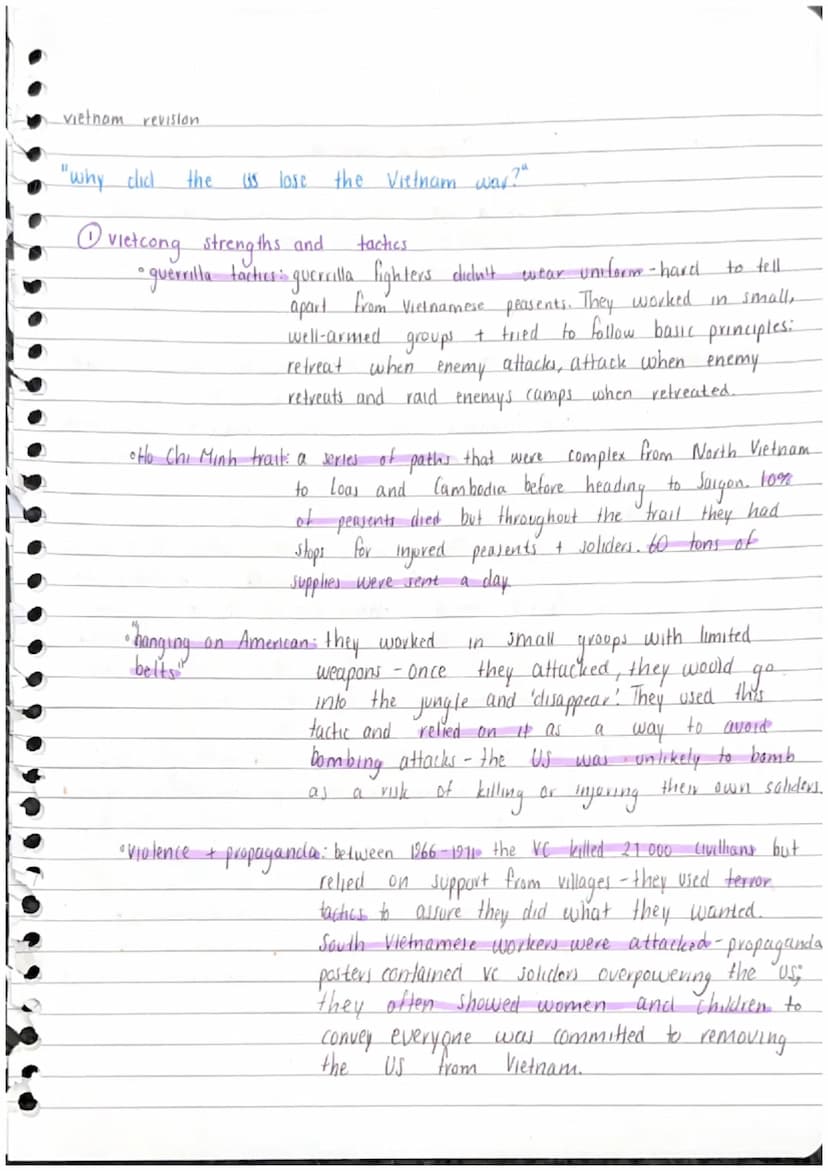 vietnam revision
"why did the US lose the Vietnam war?"
① Vietcong strengths and tactics
• guerrilla tactics: guerrilla fighters didn't wear uniform - hard to tell
apart from Vietnamese peasents. They worked in small,
well-armed groups + tried to follow basic principles:
retreat when enemy attacks, attack when enemy
retreats and raid enemys camps when retreated.
• Ho Chi Minh trail: a series of paths that were complex from North Vietnam
to Loas and Cambodia before heading to Saigon. 10%
of peasents died but throughout the trail they had
stops for injured peasents + soliders. 60 tons of
supplies were sent a day
• "hanging on American: they worked in small groups with limited
belts" weapons - once they attacked, they would go
into the jungle and 'disappear'. They used this
tactic and relied on it as a way to avoid
bombing attacks - the US was unlikely to bomb
as a risk of killing or injuring their own soliders.
• violence + propaganda: between 1966-1971 the VC killed 27 000 civilians but
relied on support from villages - they used terror
tactics to assure they did what they wanted.
South Vietnamese workers were attacked - propaganda
posters contained VC soliders overpowering the US;
they often showed women and children to
convey everyone was committed to removing
the US from Vietnam.